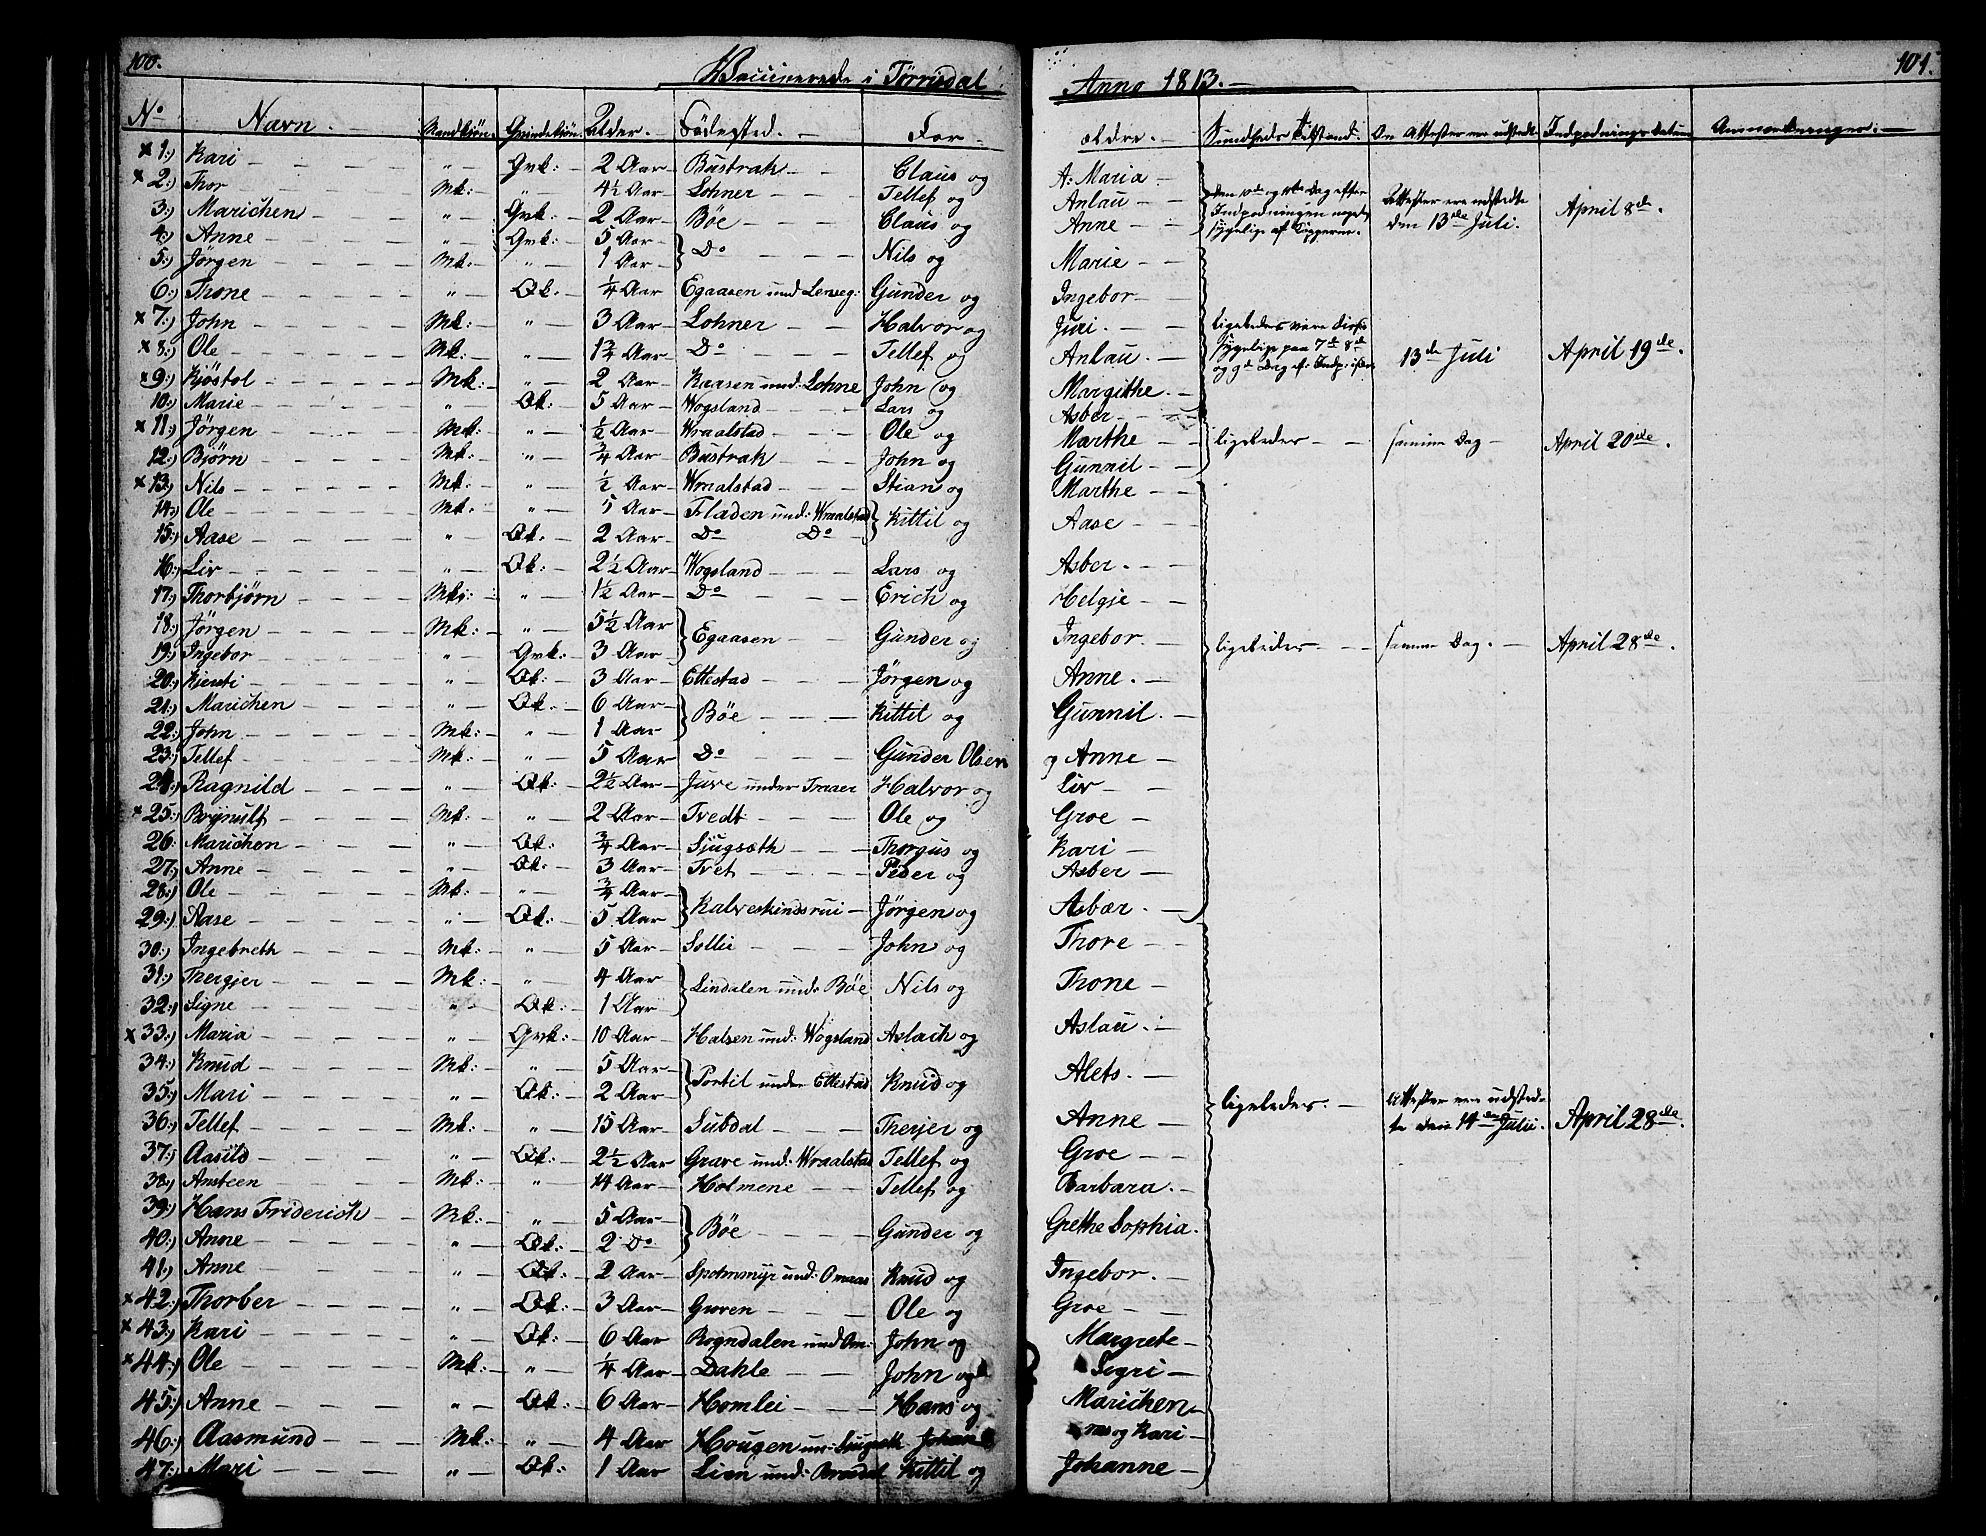 100.
Vaccinerede i Tørrisdal
Anno 1813.
101.
No Navn. Mandkiøn. Qvindekiøn. Alder. Fødested. For ældre. Sundheds Tilstand. Om Attester ere udstedt Indpodnings Datum Anmærkninger.
x 1:) Kari " Qvk: 2 Aar Bustrak Claus og A: Maria
x 2:) Thor Mk: " 4½ Aar Lohner Tellef og Anlau
3:) Marichen " Qvk: 2 Aar Bøe Claus og Anne
Indpodningen
Attester ere udstedte den 13de Juli. April 8de.
4:) Anne " Qvk: 5 Aar } Do Nils og Marie
5:) Jørgen Mk: " 1 Aar
6:) Trone " Qk: ¼ Aar Egaasen und Lenseg: Gunder og Ingebor
x 7:) John Mk: " 3 Aar Lohner Halvor og Juri.
x 8:) Ole Mk: " 1¾ Aar Do Tellef og Anlau.
ligeledes vare disse sygelige paa 7de 8de og 9de Dag 13de Juli April 19de.
x 9:) Kjøstol Mk: " 2 Aar Kaasen und: Lohne John og Margithe
10:) Marie " Qk: 5 Aar Wogsland Lars og Asber
x 11:) Jørgen Mk: " ½ Aar Wraalstad Ole og Marthe ligeledes samme Dag April 20de.
12:) Bjørn Mk: " ¾ Aar Bustrak John og Gunnil
x 13:) Nils Mk: " ½ Aar Wraalstad Stian og Marthe
14:) Ole Mk: " 5 Aar Fladen und: Wraalstad } Kittil og Aase
15:) Aase " Qk: 2 Aar Do Do
16:) Liv " Qk: 2½ Aar Wogsland Lars og Asber.
17:) Thorbjørn Mk: " 1½ Aar Do Erich og Helgje
18:) Jørgen Mk: " 5½ Aar } Egaasen Gunder og Ingebor.
19:) Ingebor " Qvk: 3 Aar
ligeledes. samme Dag. April 28de.
20:) Kjersti " Qk: 3 Aar Ettestad Jørgen og Anne.
21:) Marichen " Qk: 6 Aar } Bøe Kittil og Gunnil.
22:) John Mk: " 1 Aar
23:) Tellef Mk: " 5 Aar Do Gunder Olsen og Anne
24:) Ragnild " Qk: 2½ Aar Juve under Halvor og Liv
x 25:) Brynulf Mk: " 2 Aar Tvedt Ole og Groe
26: Marichen " Qk: ¾ Aar Sjugsæth Thorgus og Kari
27:) Anne " Qk: 3 Aar Tvet Peder og Asber
28:) Ole Mk: " ¾ Aar } Kalveskindsrui Jørgen og Asbær.
29:) Aase " Qk: 5 Aar
30:) Ingebreth Mk: " 5 Aar Sollie John og Thore
31:) Thergjer Mk: " 4 Aar } Lindalen und: Bøe Nils og Trone
32:) Signe " Qk: 1 Aar
x 33:) Maria " Qvk: 10 Aar Halsen und: Wogsland Aslach og Aslau.
34:) Knud Mk: " 5 Aar } Portil under Ettestad Knud og Alets.
35:) Mari " Qk: 2 Aar
ligeledes. Attester ere udstedte den 14de Julii. April 28de.
36:) Tellef Mk: " 15 Aar Subdal Therjer og Anne
37:) Aasild " Qk: 2½ Aar Grave und: Wraalstad Tellef og Groe
38:) Ansteen Mk: " 14 Aar Holmene Tellef og Barbara.
39:) Hans Friderich Mk: " 5 Aar } Bøe Gunder og Grethe Sophia.
40:) Anne " Qk: 2 Do
41:) Anne " Qk: 2 Aar Spotmmyr und: Omaas Knud og Ingebor.
x 42:) Thorber " Qk: 3 Aar Groven Ole og Groe
x 43:) Kari " Qk: 6 Aar Rogndalen und Om: John og Margrete
x 44:) Ole Mk: " ¼ Aar Dahle John og Sigri
45:) Anne " Qk: 6 Aar Homlei Hans og Marichen
46:) Aasmund Mk: " 4 Aar Hougen un: Sjugsæth Johan og Kari
47:) Mari " Qk: 1 Aar Lien und: Kittil og Johanne